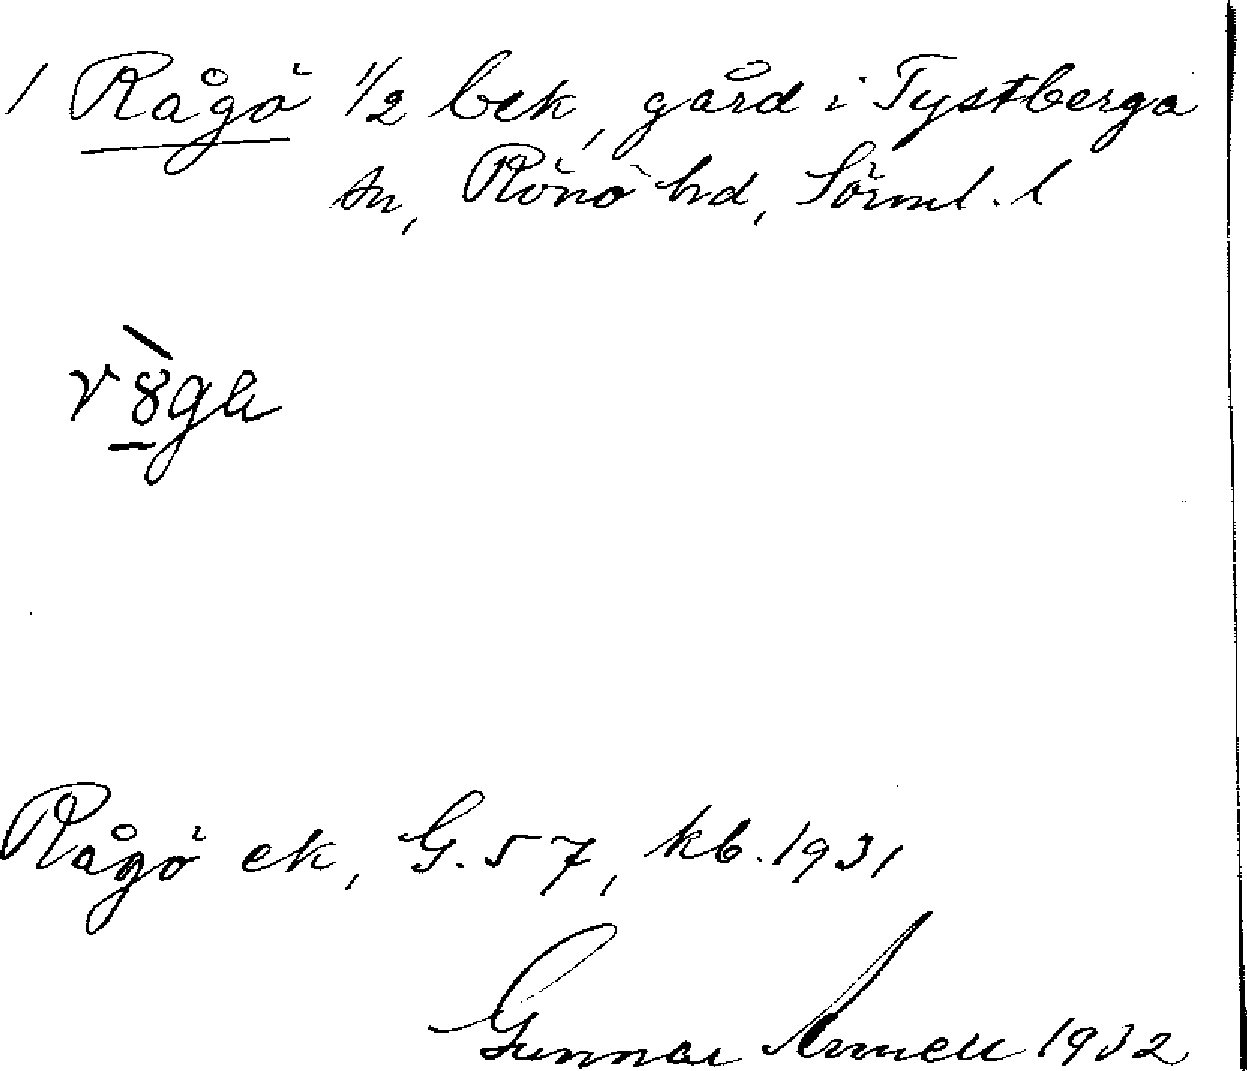 1 Rågö 1/2 bek, gård i Tystberga
sn, Rönö hd, Sörml. l
Rågö ek, G. 57, kb. 1931
Gunnar 1932